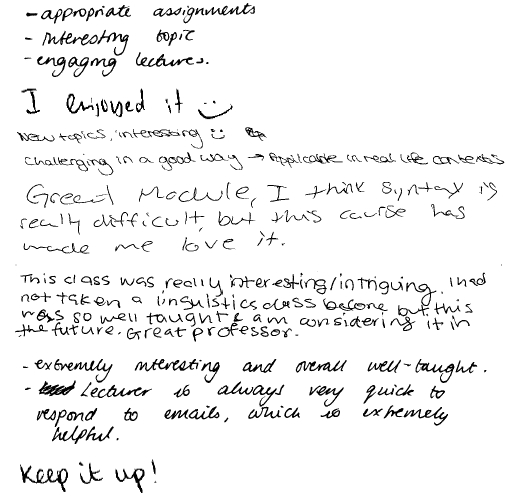 - appropriate assignments
- interesting topic
- engaging lectures.
I enjoyed it :)
New topics, interesting :)
challenging in a good way → Applicable in real life contexts
Great Module, I think Syntax is
really difficult, but this course has
made me love it.
This class was really interesting/intriguing. I had
not taken a linguistics class before but this
was so well taught & am considering it in
the future. Great professor.
- extremely interesting and overall well-taught.
- Lecturer is always very quick to
respond to emails, which is extremely
helpful.
Keep it up!